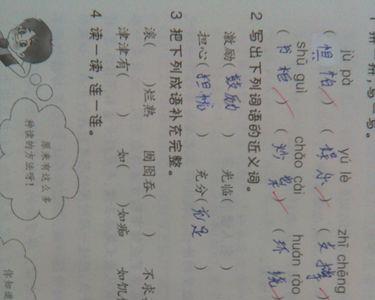 jù pà yú lè zhī chēng
(惧怕) (娱乐) (支撑)
shū guì chǎo cài huán rào
(书柜) (炒菜) (环绕)
2 写出下列词语的近义词。
激励(鼓励) 光临( )
担心(担忧) 充分(充足)
3 把下列成语补充完整。
滚( )烂熟 囫囵吞( ) 不求
津津有( ) 如( )如痴 如饥
4 读一读,连一连。
原来有这么多
种读的方法呀!
你知道